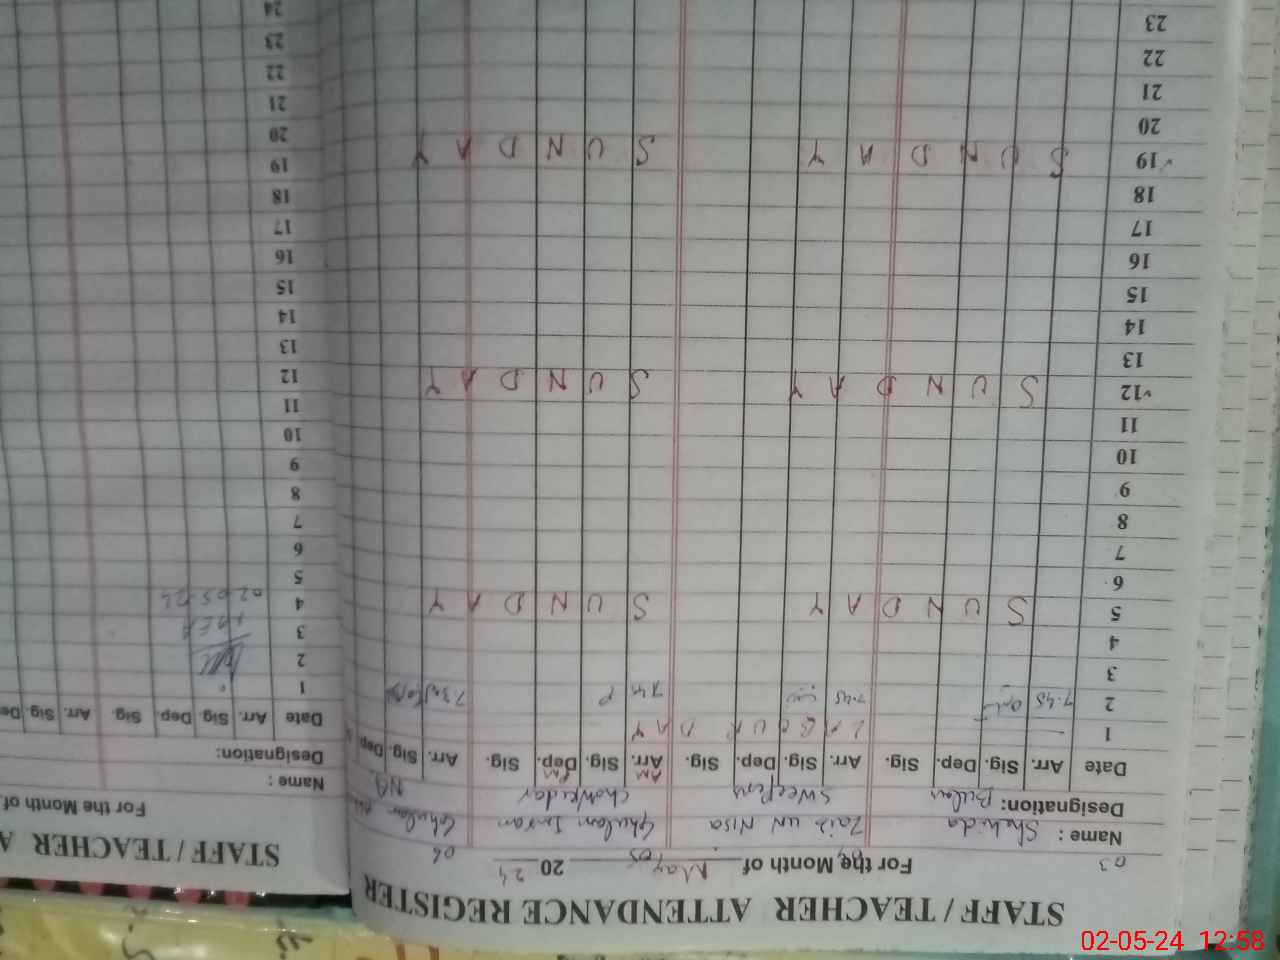 STAFF / TEACHER ATTENDANCE REGISTER
For the Month of May 05 2024
03 06
Name : Shahida Zaib un Nisa Ghulam Imran Ghulam
Designation: Sweeper Chowkidar NQ
AM PM
Date Arr. Sig. Dep. Sig. Arr. Sig. Dep. Sig. Arr. Sig. Dep. Sig. Arr. Sig. Dep.
1 LABOUR DAY
2 7.45 7.45 P
3
4
5 SUNDAY SUNDAY
6
7
8
9
10
11
12 SUNDAY SUNDAY
13
14
15
16
17
18
19 SUNDAY SUNDAY
20
21
22
23
STAFF / TEACHER A
For the Month of
Name :
Designation:
Date Arr. Sig. Dep. Sig. Arr. Sig. De
1
2
3
4 02-05-24
5
6
7
8
9
10
11
12
13
14
15
16
17
18
19
20
21
22
23
24
02-05-24 12:58